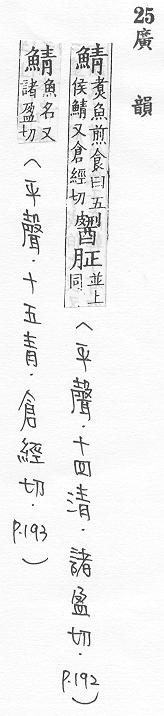 25 廣韻
鯖 煑魚煎食曰五侯鯖又倉經切 並上同
〈平聲．十四清．諸盈切．P.192〉
鯖 魚名又諸盈切
〈平聲．十五青．倉經切．P.193〉